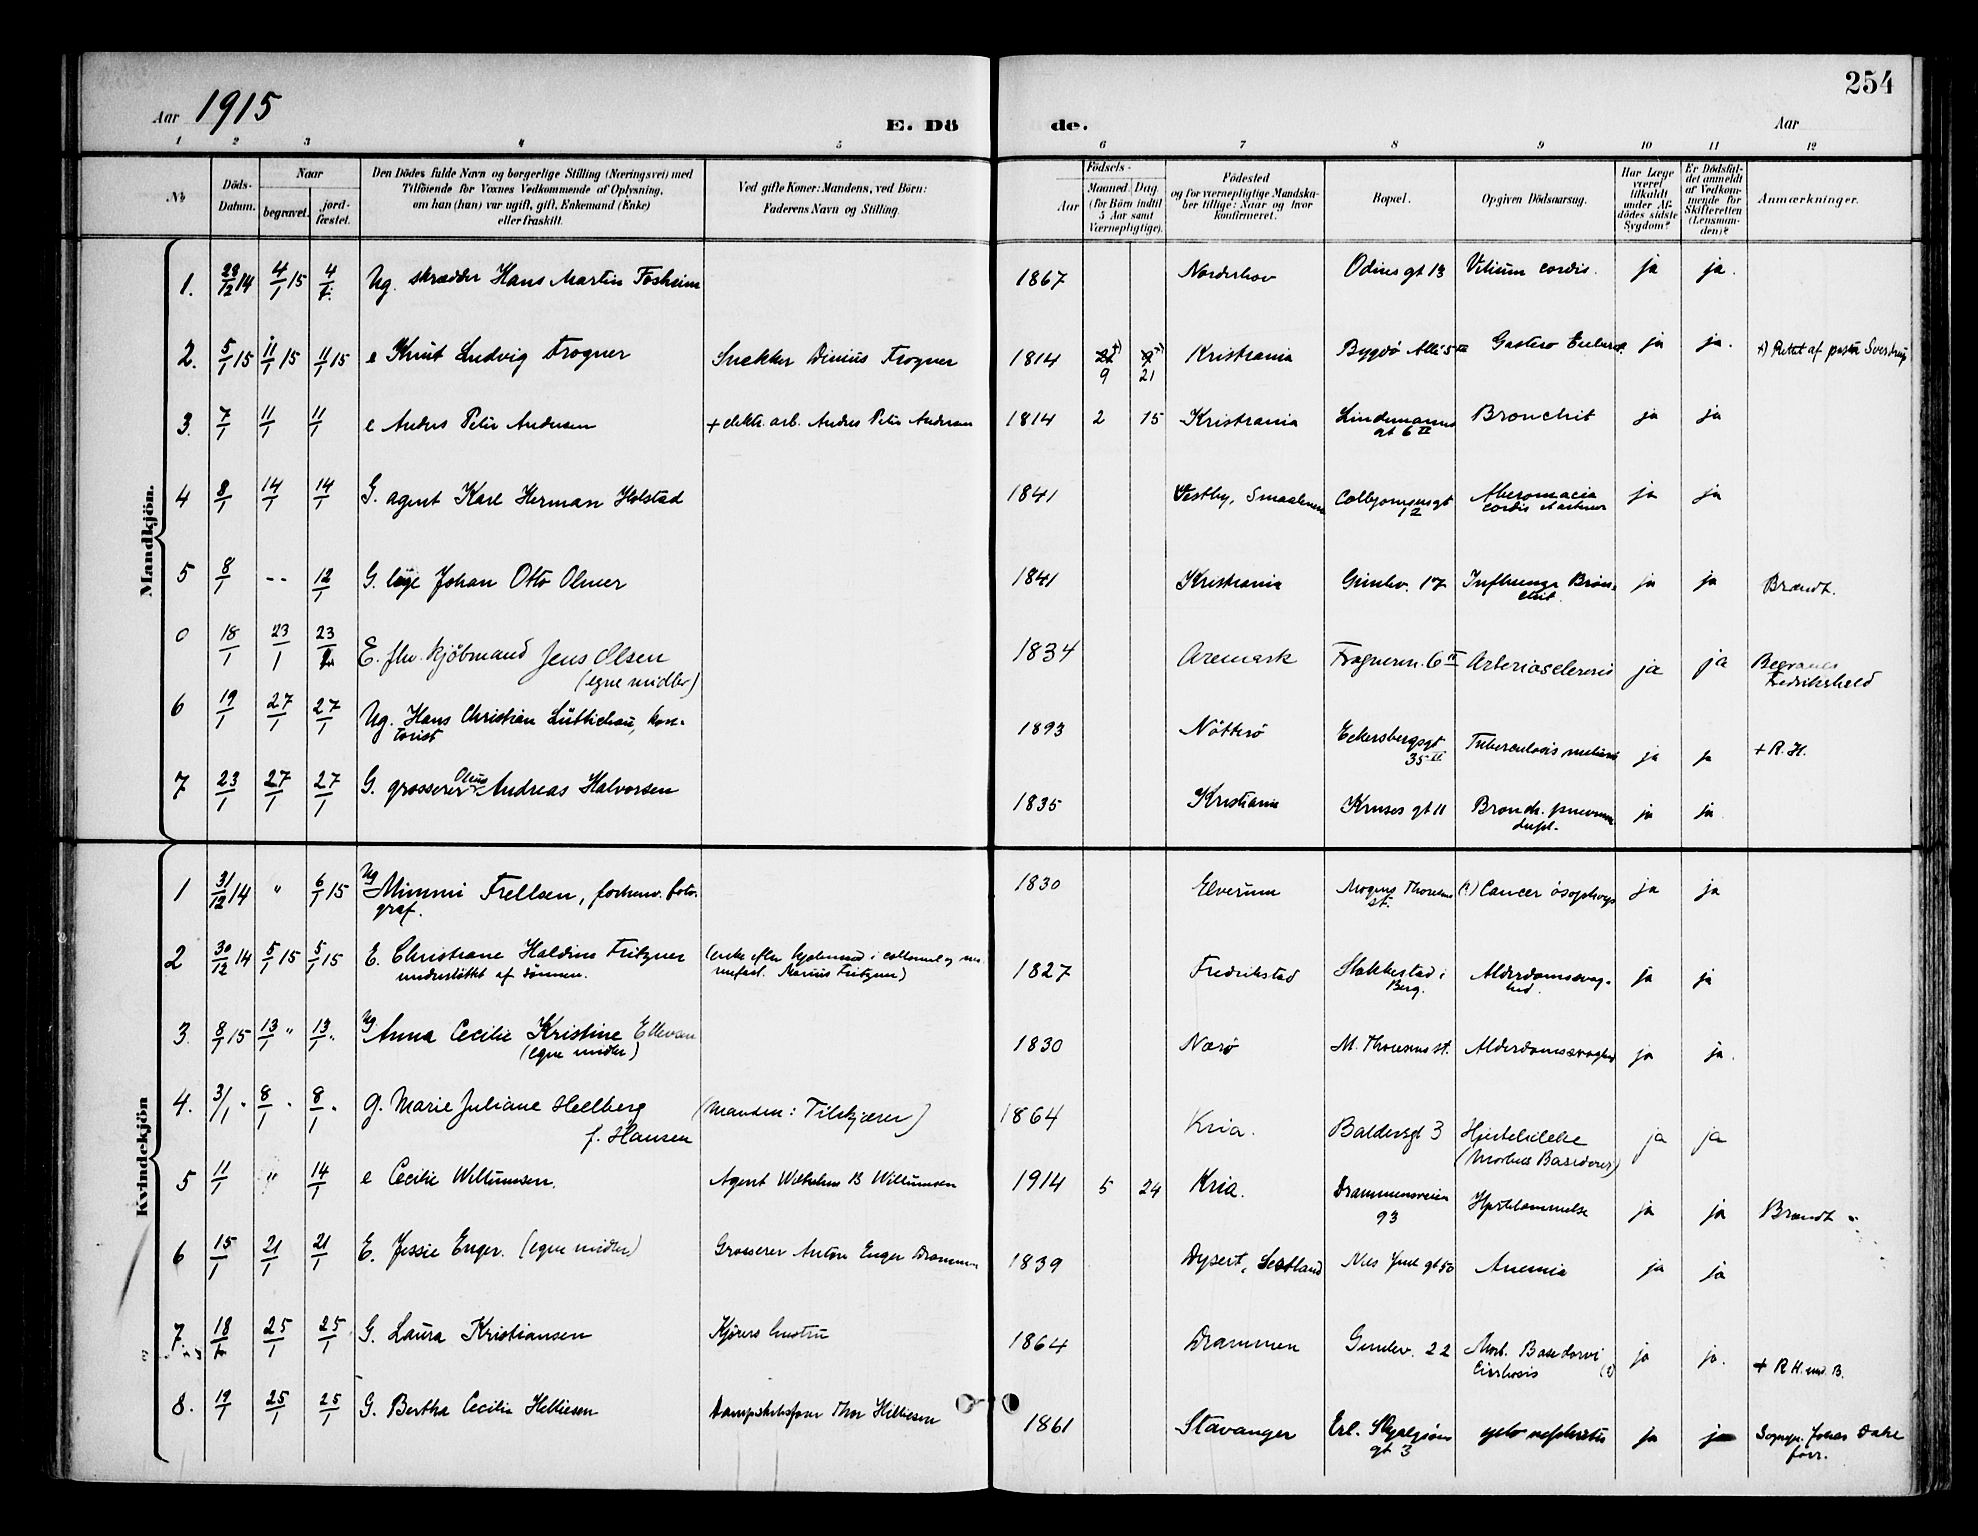 254
Aar 1915
E. Døde.
Aar
1 2 3 4 5 6 7 8 9 10 11 12
No
Døds-Datum.
Naar
begravet.
jord-fæstet.
Den Dødes fulde Navn og borgerlige Stilling (Næringsvei) med
Tilføiende for Voxnes Vedkommende af Oplysning,
om han (hun) var ugift, gift, Enkemand (Enke)
eller fraskilt.
Ved gifte Koner: Mandens, ved Børn:
Faderens Navn og Stilling.
Fødsels-
Aar
Maaned. Dag.
(for Børn indtil
5 Aar samt
Værnepligtige).
Fødested
og for værnepligtige Mandska-
ber tillige: Naar og hvor
konfirmeret.
Bopæl.
Opgiven Dødsaarsag.
Har Læge
været
tilkaldt
under Af-
dødes sidste
Sygdom?
Er Dødsfal-
det anmeldt
af Vedkom-
mende for
Skifteretten
(Lensman-
den)?
Anmærkninger.
Mandkjøn.
1. 23/12 14 4/1 15 4/1 Ug. skrædder Hans Martin Fosheim 1867 Norderhov Odins gt 13 Vitium cordis. ja ja.
2. 5/1 15 11/1 15 11/1 15 e Knut Ludvig Frogner Snekker Dinius Frogner 1814 9 21 Kristiania Bygdø Allé 5 III Gastero ja ja. x) Rettet af pastor Sverdrup
3. 7/1 11/1 11/1 e Anders Peter Andersen + elektr. arb. Anders Peter Andersen 1814 2 15 Kristiania Lindemanns
gt 6 II Bronchit ja ja
4 8/1 14/1 14/1 G. agent Karl Herman Holstad 1841 Vestby, Smaalenene Colbjørnsensgt
12 cordis ja ja
5 8/1 -- 12/1 G. læge Johan Otto Olmer 1841 Kristiania Gimlev. 17 Influenza Bron-
chit. ja ja Brændt.
0 18/1 23/1 23/1 E. fhv. kjøbmand Jens Olsen
(egne midler) 1834 Aremark Frognerv. 6 II Arteriosclerosis ja ja Begraves
Fredrikshald
6 19/1 27/1 27/1 Ug. Hans Christian Lüttichau, kon-
torist 1893 Nøtterø Eckersbergsgt
35 II Tuberculosis miliaris ja ja + R. H.
7 23/1 27/1 27/1 G. grosserer Olaus Andreas Halvorsen 1835 Kristiania Kruses gt 11 Bronch. pneumon
dupl. ja ja
Kvindekjøn
1 31/12 14 " 6/1 15 Ug Mimmi Frellsen, forhenv. foto-
graf. 1830 Elverum Mogens Thoresens
st. (?) Cancer øsophags ja ja
2 30/12 14 5/1 15 5/1 15 E. Christiane Haldine Fritzner
understøttet af sønnen. (enke efter
Marius Fritzner) 1827 Fredrikstad Stokkestad i
Berg. Alderdomssvag-
hed. ja ja
3. 8/1 15 13/1 " 13/1 " Ug Anna Cecilie Kristine Ellevan
(egne midler) 1830 Nærø M. Thoresens st. Alderdomssvaghed ja ja.
4. 3/1 " 8/1 " 8/1 " g. Marie Juliane Hellberg
f. Hansen (manden: Tilskjærer) 1864 Kria. Baldersgt 3 Hjertelidelse
(Morbus Basedowii) ja ja
5 11/1 " 14/1 e Cecilie Willumsen. Agent Wilhelm B Willumsen 1914 5 24 Kria. Drammensveien
93 Hjertelammelse ja ja Brændt
6 15/1 21/1 21/1 E. Jessie Enger. (egne midler) Grosserer Anton Enger Drammen 1839 Dysert, Scotland Niels Juel gt 50 Anemia ja ja
7. 18/1 25/1 25/1 G. Laura Kristiansen Kjørers hustru 1864 Drammen Gimlev. 22 Morb. Basedowi
Cirrhosis (?) ja ja. + R.H. B.
8. 19/1 25/1 25/1 G. Bertha Cecilie Helliesen Dampskibsfører Thor Helliesen 1861 Stavanger Erl. Skjalgsøns
gt 3 nephritis ja ja Sognepr. Johs Dahl
forr.